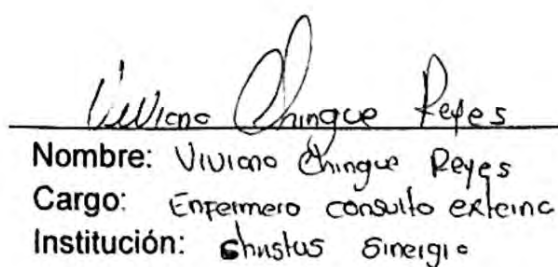 Viviana Chingue Reyes
Nombre: Viviana Chingue Reyes
Cargo: Enfermera consulta externa
Institución: Christus Sinergia